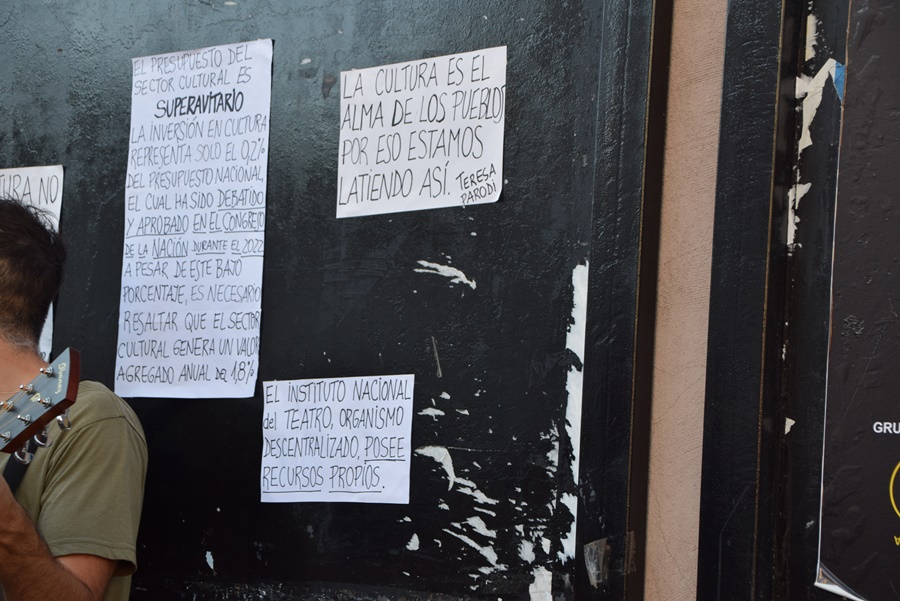 TURA NO
EL PRESUPUESTO DEL
SECTOR CULTURAL ES
SUPERAVITARIO
LA INVERSIÓN EN CULTURA
REPRESENTA SOLO EL 0,2%
DEL PRESUPUESTO NACIONAL,
EL CUAL HA SIDO DEBATIDO
Y APROBADO EN EL CONGRESO
DE LA NACIÓN DURANTE EL 2022
A PESAR DE ESTE BAJO
PORCENTAJE, ES NECESARIO
RESALTAR QUE EL SECTOR
CULTURAL GENERA UN VALOR
AGREGADO ANUAL DE 1,8%
LA CULTURA ES EL
ALMA DE LOS PUEBLOS
POR ESO ESTAMOS
LATIENDO ASÍ. TERESA
PARODI
EL INSTITUTO NACIONAL
del TEATRO, ORGANISMO
DESCENTRALIZADO, POSEE
RECURSOS PROPIOS.
GRU